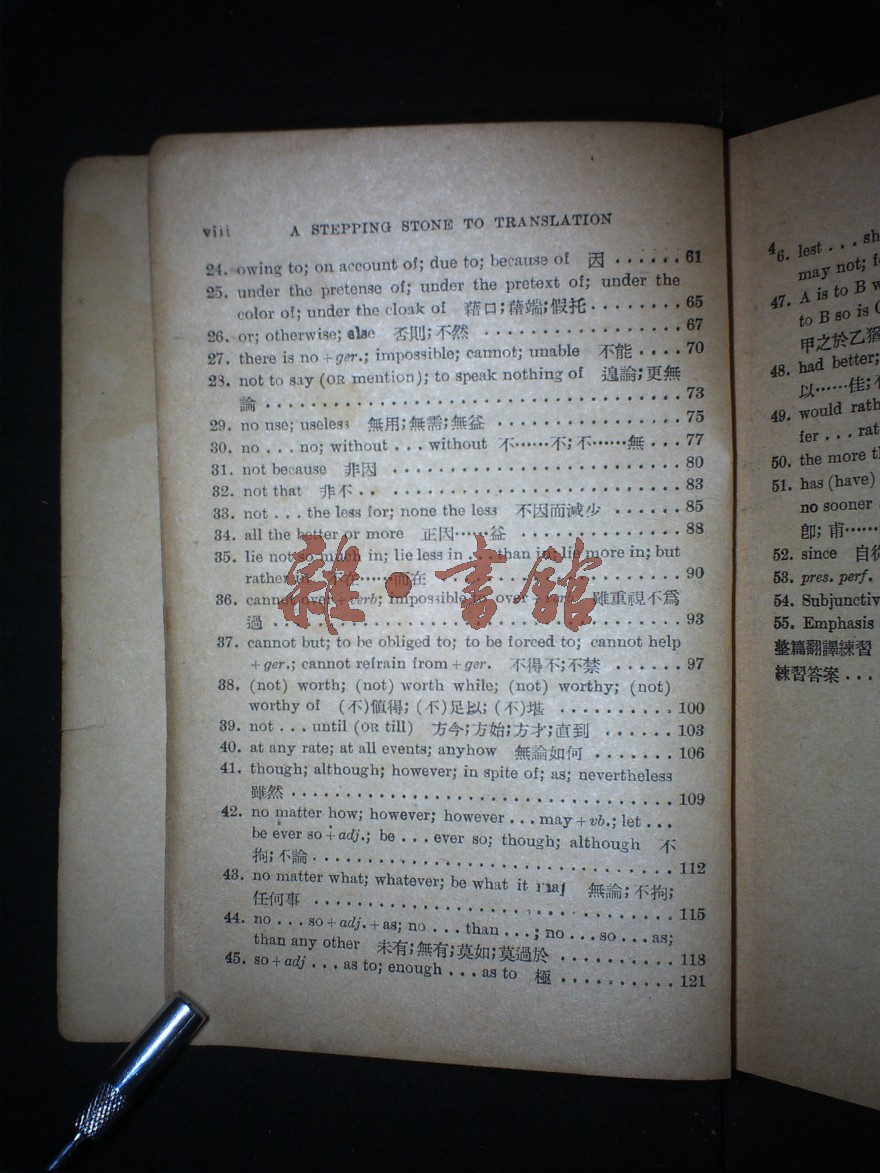 viii A STEPPING STONE TO TRANSLATION
24. owing to; on account of; due to; because of 因 ...... 61
25. under the pretense of; under the pretext of; under the
color of; under the cloak of 藉口;藉端;假托 ........ 65
26. or; otherwise; else 否則;不然 .................. 67
27. there is no + ger.; impossible; cannot; unable 不能 .... 70
28. not to say (OR mention); to speak nothing of 遑論;更無
論 ...................................... 73
29. no use; useless 無用;無需;無益 ................. 75
30. no ... no; without ... without 不……不;不……無 ... 77
31. not because 非因 .......................... 80
32. not that 非不 .. .......................... 83
33. not ... the less for; none the less 不因而減少 ...... 85
34. all the better or more 正因……益 ............... 88
35. lie not so much in; lie less in ... than in; lie more in; but
rather in 不在……而在 ..................... 90
36. cannot over + verb; impossible to over + verb 雖重視不爲
過 ...................................... 93
37. cannot but; to be obliged to; to be forced to; cannot help
+ ger.; cannot refrain from + ger. 不得不;不禁 ...... 97
38. (not) worth; (not) worth while; (not) worthy; (not)
worthy of (不)値得;(不)足以;(不)堪 .......... 100
39. not ... until (OR till) 方今;方始;方才;直到 ...... 103
40. at any rate; at all events; anyhow 無論如何 ....... 106
41. though; although; however; in spite of; as; nevertheless
雖然 ................................... 109
42. no matter how; however; however ... may + vb.; let ...
be ever so + adj.; be ... ever so; though; although 不
拘;不論 ................................. 112
43. no matter what; whatever; be what it may 無論;不拘;
任何事 ................................. 115
44. no ... so + adj. + as; no ... than ...; no ... so ... as;
than any other 未有;無有;莫如;莫過於 .......... 118
45. so + adj ... as to; enough ... as to 極 .......... 121
雜·書館
46. lest ... sh
may not; f
47. A is to B w
to B so is
甲之於乙猶
48. had better;
以……佳;
49. would rath
fer ... rat
50. the more th
51. has (have)
no sooner
卽;甫……
52. since 自從
53. pres. perf.
54. Subjunctiv
55. Emphasis
整篇翻譯練習
練習答案 ...